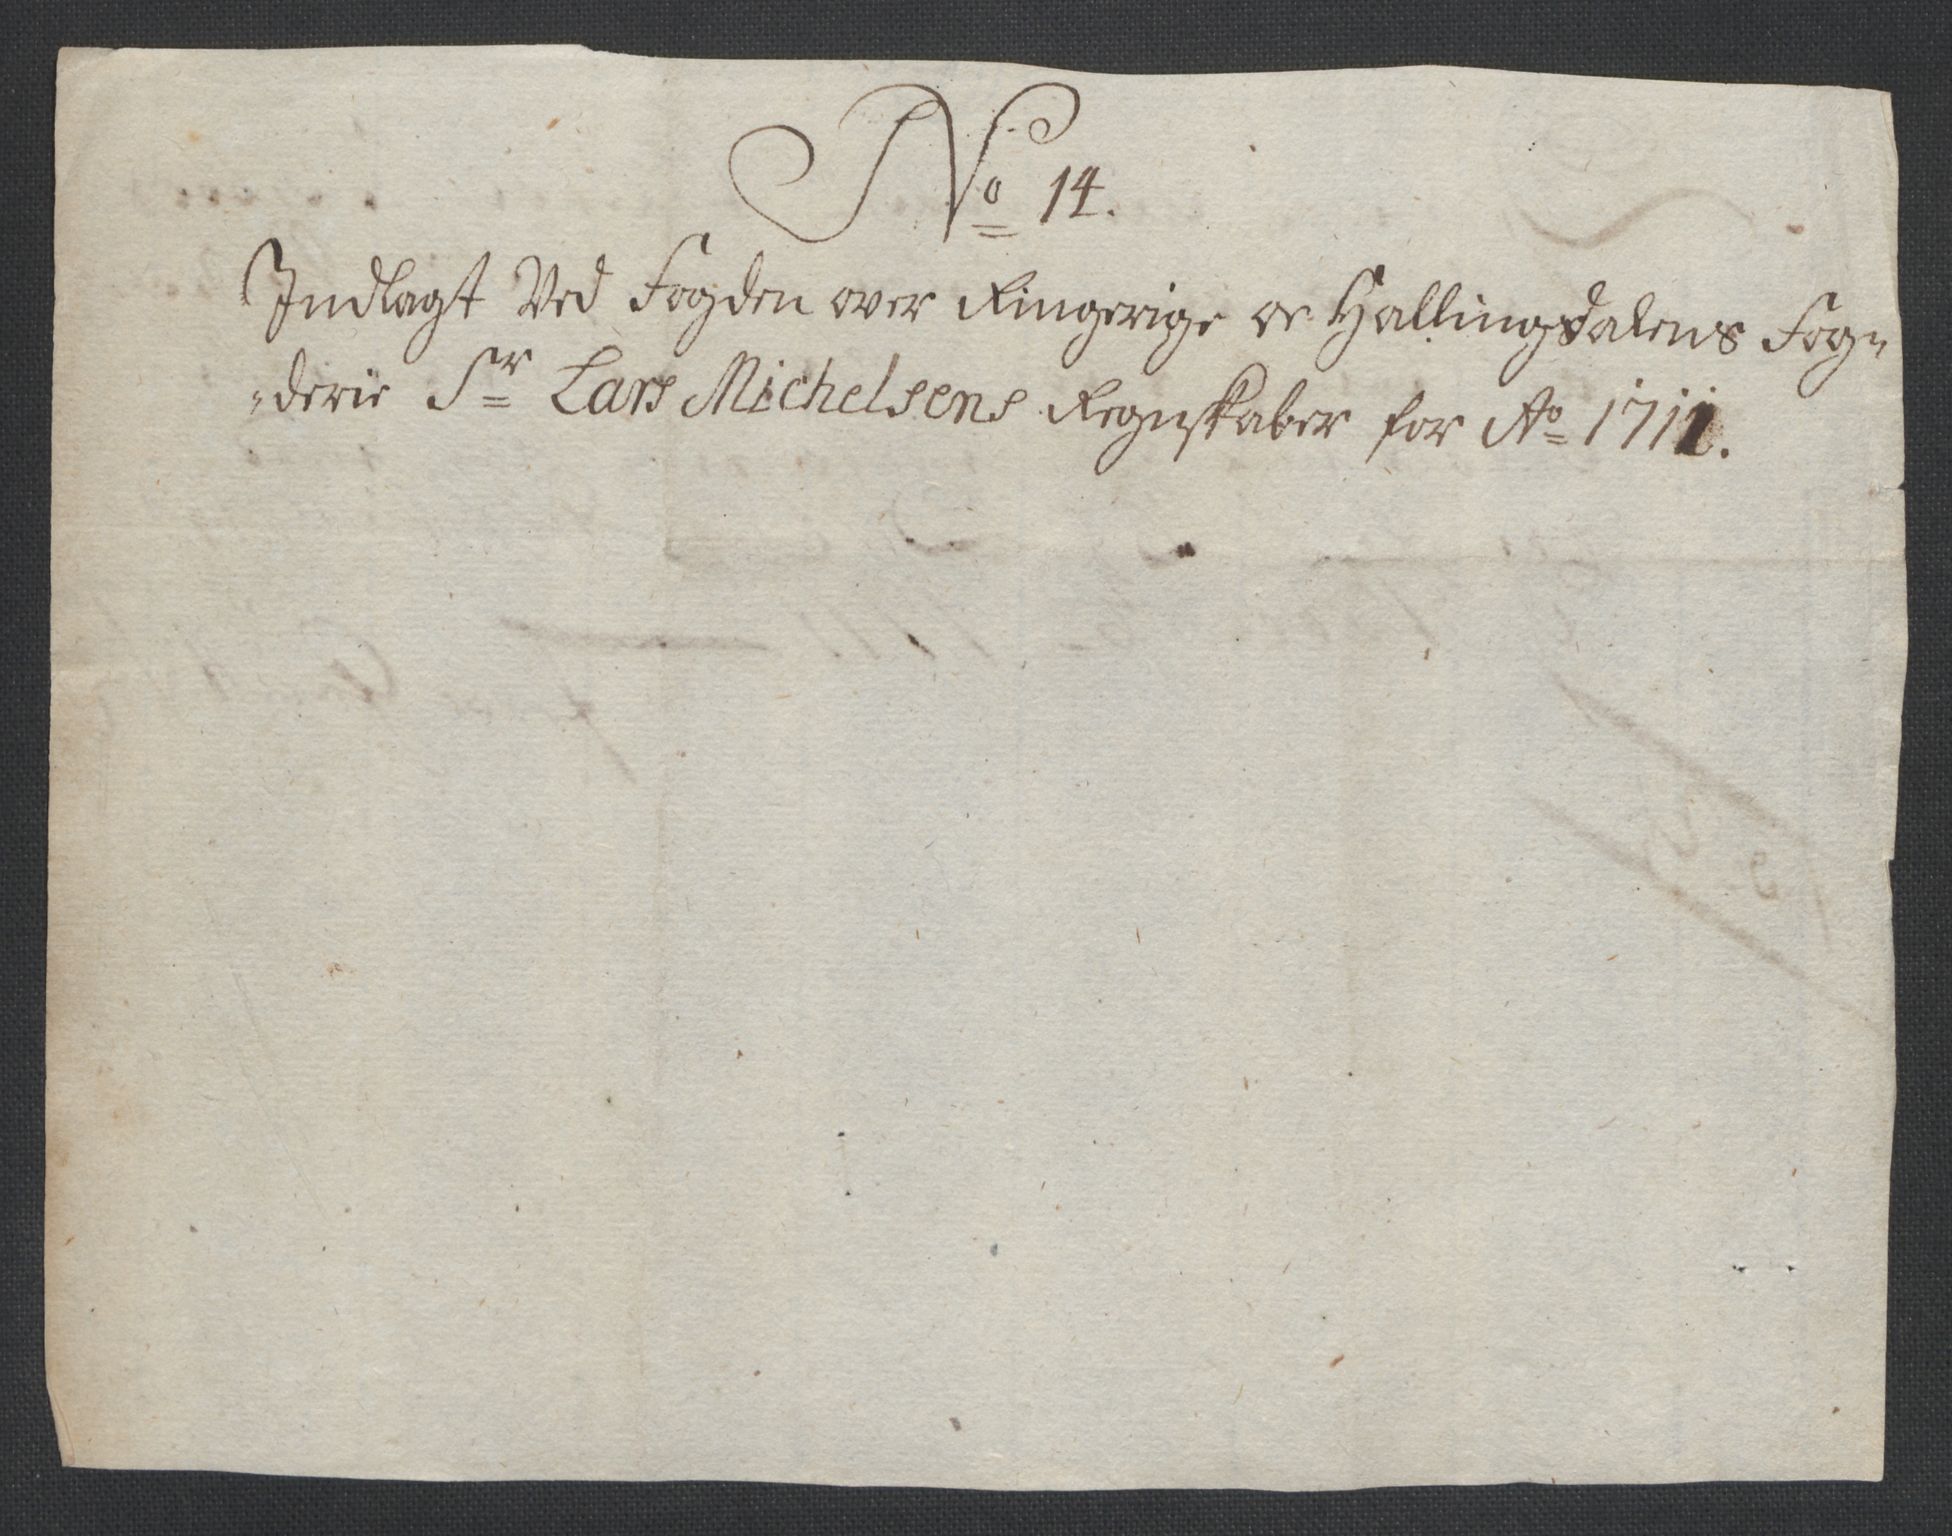 No 14.
Indlagt Ved Fogden over Ringerige oc Hallingdalens Fog-
-derie Sr Lars Michelsens Regnskaber for Ao 1711.